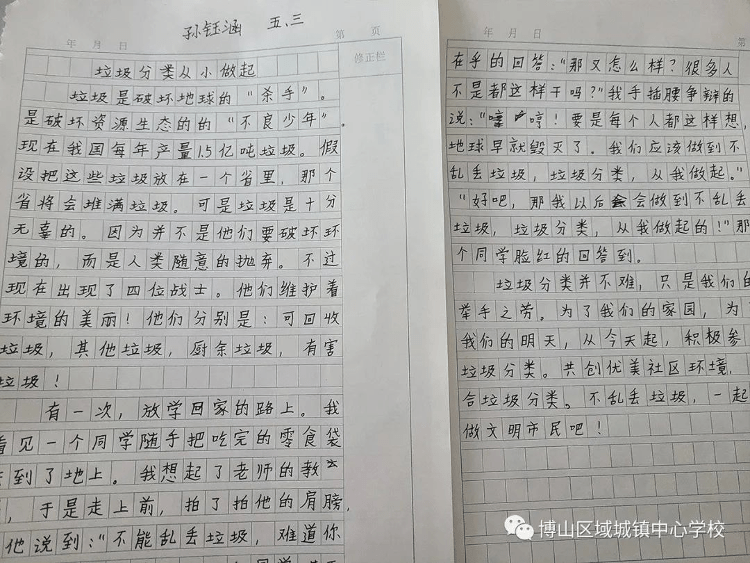 孙钰涵 五.三
年 月 日 第 页
修正栏
垃圾分类从小做起
垃圾是破坏地球的“杀手”。
是破坏资源生态的的“不良少年”。
现在我国每年产量1.5亿吨垃圾。假
设把这些垃圾放在一个省里，那个
省将会堆满垃圾。可是垃圾是十分
无辜的。因为并不是他们要破坏环
境的，而是人类随意的抛弃。不过
现在出现了四位战士。他们维护着
环境的美丽！他们分别是：可回收
垃圾，其他垃圾，厨余垃圾，有害
垃圾！
有一次，放学回家的路上。我
看见一个同学随手把吃完的零食袋
到了地上。我想起了老师的教
，于是走上前，拍了拍他的肩膀，
他说到：“不能乱丢垃圾，难道你
年 月 日 第
在乎的回答：“那又怎么样？很多人
不是都这样干吗？”我手插腰争辩的
说：“嘿 哼！要是每个人都这样想，
地球早就毁灭了。我们应该做到不
乱丢垃圾，垃圾分类，从我做起。”
“好吧，那我以后会做到不乱丢
垃圾，垃圾分类，从我做起的！”那
个同学脸红的回答到。
垃圾分类并不难，只是我们的
举手之劳。为了我们的家园，为
我们的明天，从今天起，积极参
垃圾分类。共创优美社区环境，
合垃圾分类。不乱丢垃圾，一起
做文明市民吧！
博山区域城镇中心学校